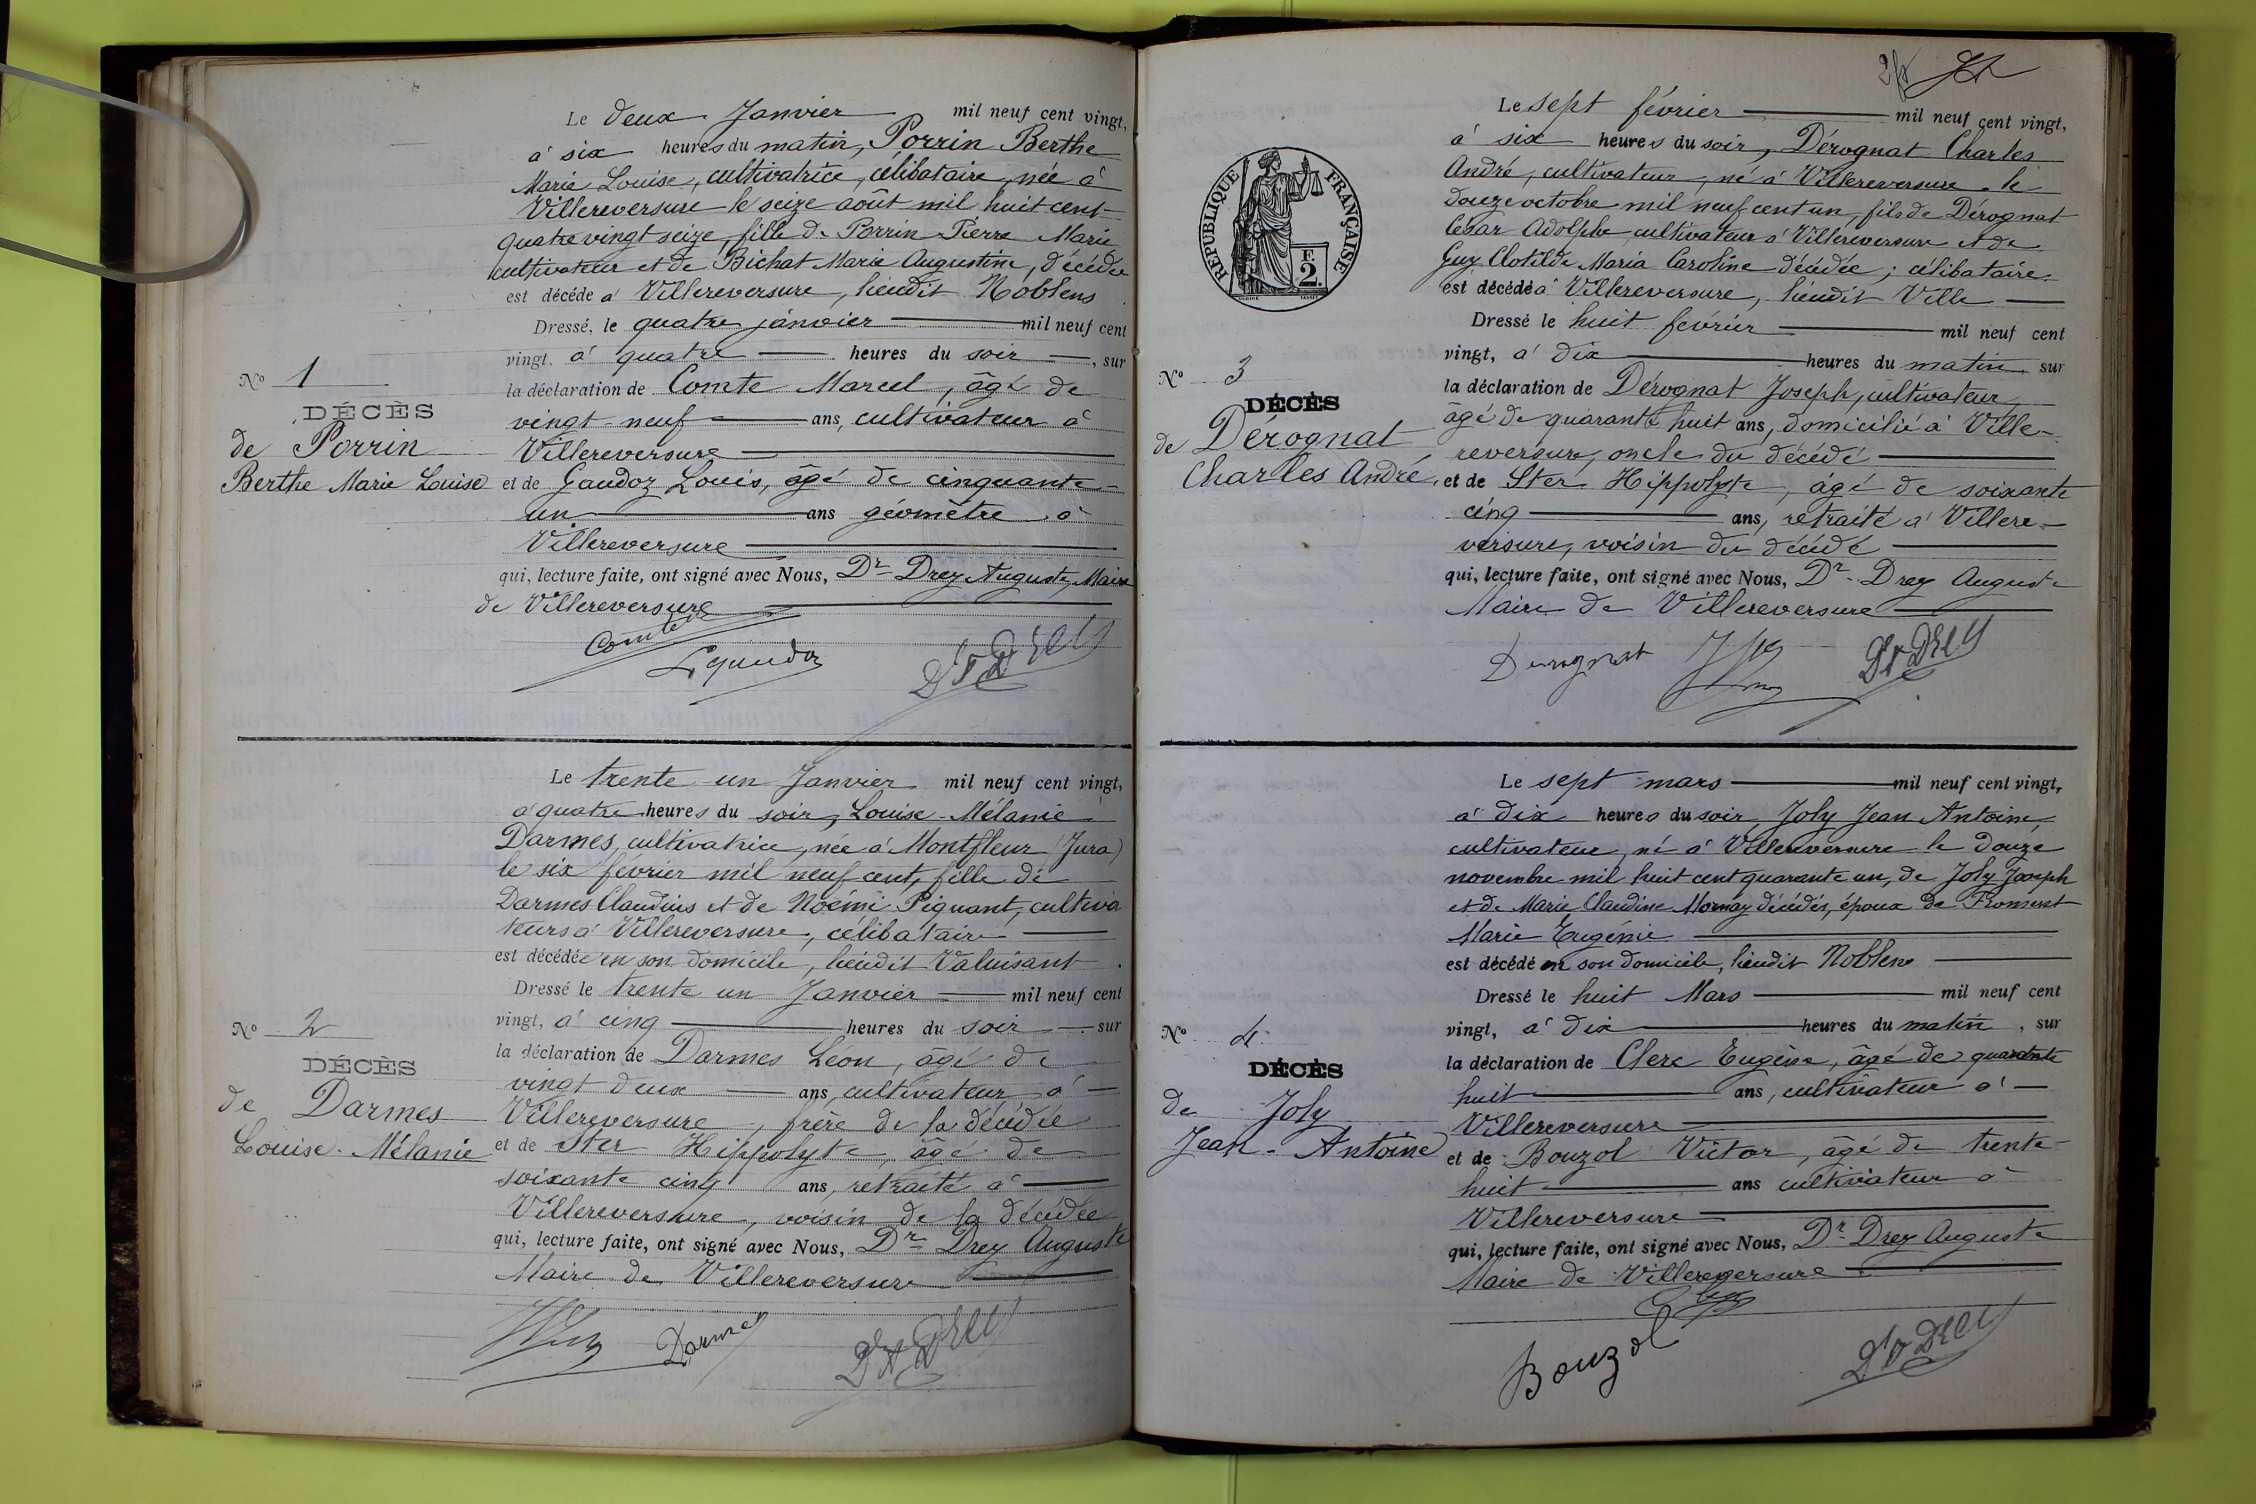 Le deux Janvier mil neuf cent vingt,
à six heures du matin, Porrin Berthe
Marie Louise, cultivatrice, célibataire, née à
Villereversure le seize août mil huit cent
quatre vingt seize, fille de Porrin Pierre Marie
cultivateur et de Bichat Marie Augustine, décédée
est décédé à Villereversure, lieudit Noblens
Dressé, le quatre janvier mil neuf cent
vingt, à quatre heures du soir, sur
Nº 1
la déclaration de Comte Marcel, âgé de
DÉCÈS
vingt-neuf ans, cultivateur à
de Porrin
Villereversure
Berthe Marie Louise
et de Gaudoz Louis, âgé de cinquante
un ans géomètre à
Villereversure
qui, lecture faite, ont signé avec Nous, Dr Drey Auguste, Maire
de Villereversure
Comte
Lgaudoz
Dr Drey
Le trente un Janvier mil neuf cent vingt,
à quatre heures du soir, Louise Mélanie
Darmes, cultivatrice, née à Montfleur (Jura)
le six février mil neuf cent, fille de
Darmes Claudius et de Noémi Piquant, cultiva
teurs à Villereversure, célibataire
est décédée en son domicile, lieudit Valuisant.
Dressé le trente un Janvier mil neuf cent
vingt, à cinq heures du soir sur
Nº 2
la déclaration de Darmes Léon, âgé de
DÉCÈS
vingt deux ans, cultivateur à
de Darmes
Villereversure, frère de la décédée
Louise-Mélanie
et de Ster Hippolyte, âgé de
soixante cinq ans, retraité à
Villereversure, voisin de la décédée
qui, lecture faite, ont signé avec Nous, Dr Drey Auguste
Maire de Villereversure
Darmes
Dr Drey
RÉPUBLIQUE FRANÇAISE
E
2.
Le sept février mil neuf cent vingt,
à six heures du soir, Dérognat Charles
André, cultivateur, né à Villereversure le
douze octobre mil neuf cent un, fils de Dérognat
César Adolphe cultivateur à Villereversure et de
Guy Clotilde Maria Caroline décédée; célibataire
est décédé à Villereversure, lieudit Ville
Dressé le huit février mil neuf cent
vingt, à dix heures du matin sur
Nº 3
la déclaration de Dérognat Joseph, cultivateur
DÉCÈS
âgé de quarante huit ans, domicilié à Ville-
de Dérognat
reversure, oncle du décédé
Charles André,
et de Ster Hippolyte, âgé de soixante
cinq ans, retraité à Villere-
versure, voisin du décédé
qui, lecture faite, ont signé avec Nous, Dr Drey Auguste
Maire de Villereversure
Derognat
Dr Drey
Le sept mars mil neuf cent vingt,
à dix heures du soir, Joly Jean Antoine
cultivateur, né à Villereversure le douze
novembre mil huit cent quarante un, de Joly Joseph
et de Marie Claudine Mornay décédés, époux de Fromeret
Marie Eugénie
est décédé en son domicile, lieudit Noblens
Dressé le huit Mars mil neuf cent
vingt, à dix heures du matin, sur
Nº 4
la déclaration de Clerc Eugène, âgé de quarante
DÉCÈS
huit ans, cultivateur à
de Joly
Villereversure
Jean-Antoine
et de Bouzol Victor, âgé de trente-
huit ans cultivateur à
Villereversure
qui, lecture faite, ont signé avec Nous, Dr Drey Auguste
Maire de Villereversure
Bouzol
Dr Drey